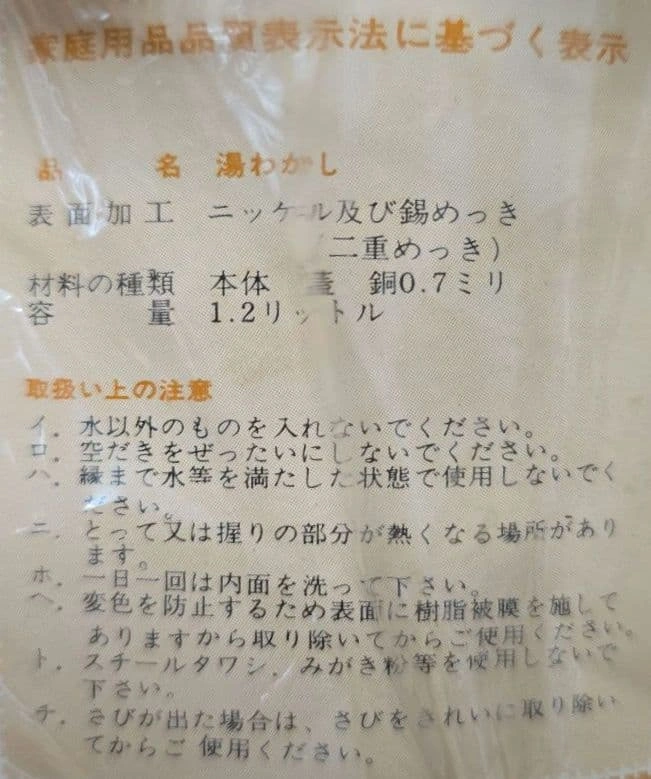 家庭用品品質表示法に基づく表示
品 名 湯わかし
表面加工 ニッケル及び錫めっき
(二重めっき)
材料の種類 本体 蓋 銅0.7ミリ
容 量 1.2リットル
取扱い上の注意
イ. 水以外のものを入れないでください。
ロ. 空だきをぜったいにしないでください。
ハ. 縁まで水等を満たした状態で使用しないでく
ださい。
ニ. とって又は握りの部分が熱くなる場所があり
ます。
ホ. 一日一回は内面を洗って下さい。
ヘ. 変色を防止するため表面に樹脂被膜を施して
ありますから取り除いてからご使用ください。
ト. スチールタワシ、みがき粉等を使用しないで
下さい。
チ. さびが出た場合は、さびをきれいに取り除い
てからご 使用ください。